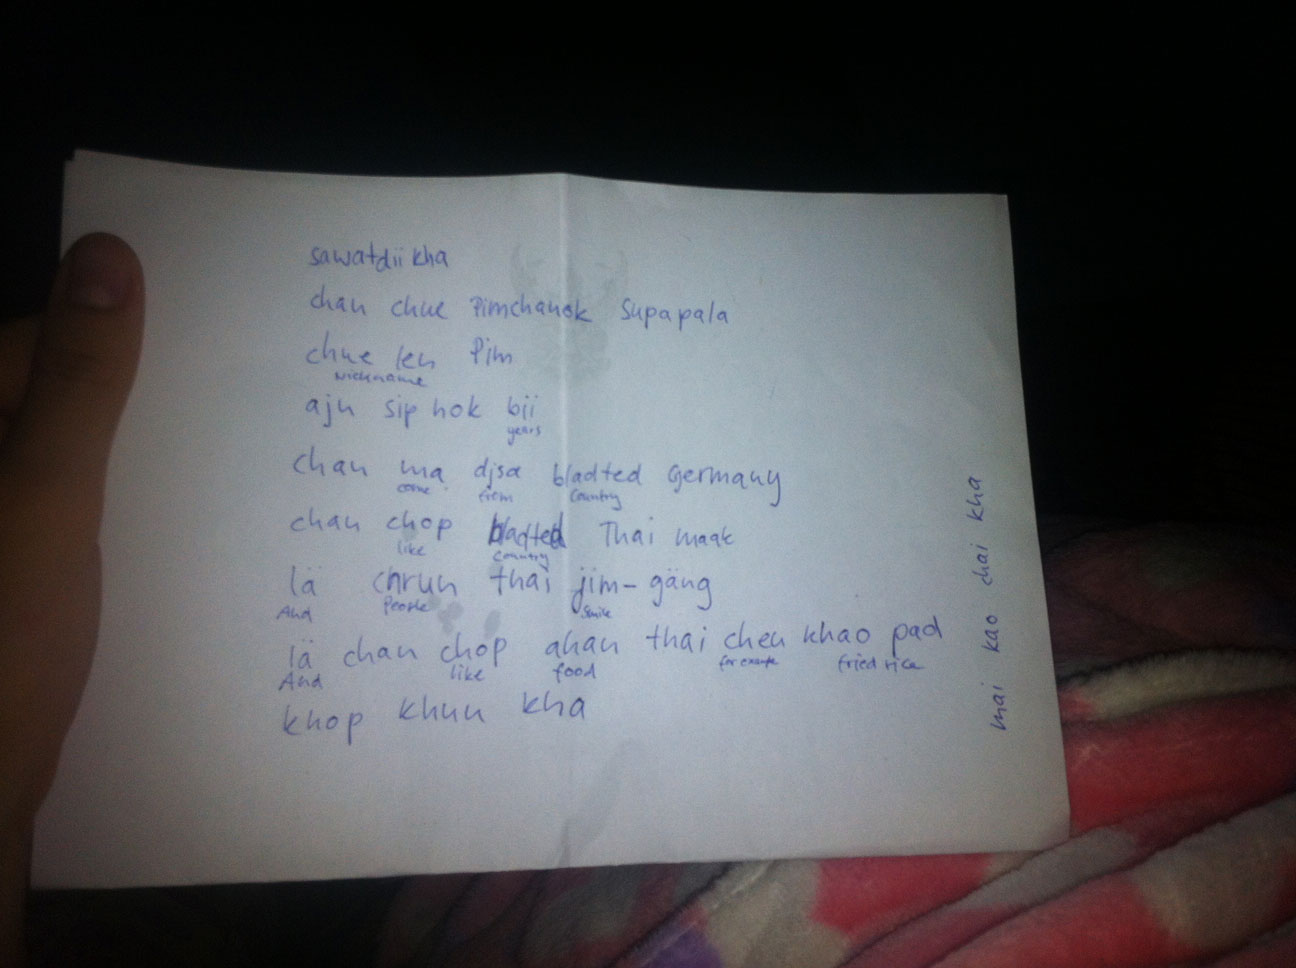 sawatdii kha
chan chue Pimchanok Supapala
chue len Pim
nickname
aju sip hok bii
years
chan ma djsa bladted Germany
come from Country
chan chop bladted Thai maak
like Country
lä chrun thai jim-gäng
And People Smile
lä chan chop ahan thai chen khao pad
And like food for example fried rice
khop khun kha
mai kao chai kha